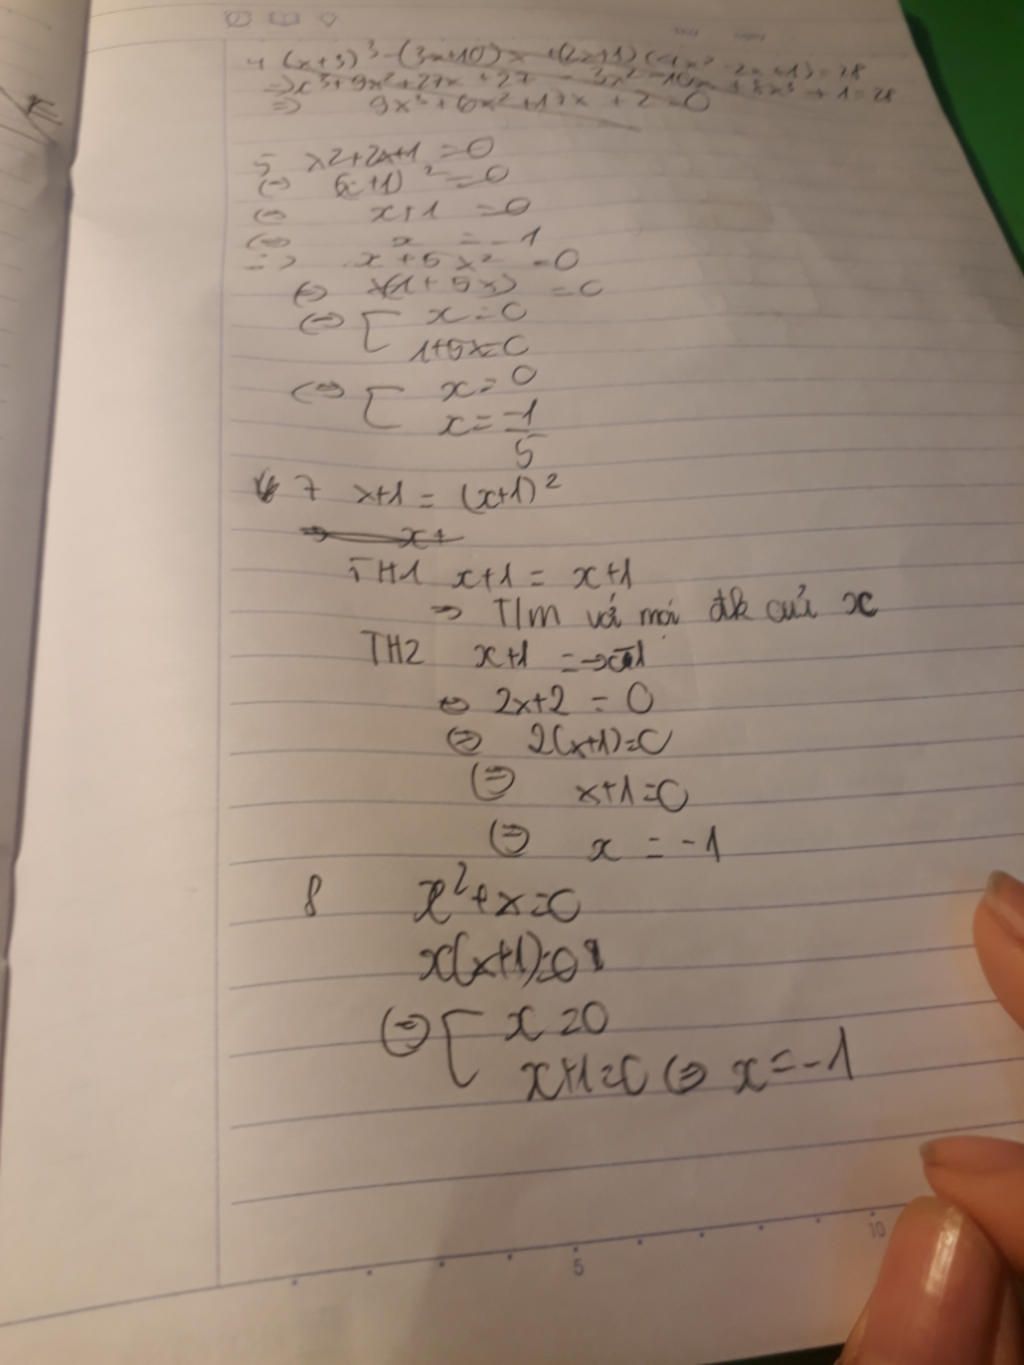 4 (x+3)³ - (3x+10)x +(2x+1)(4x² - 2x +1) = 28
=> x³ + 9x² + 27x + 27 - 3x² - 10x + 8x³ + 1 = 28
=> 9x³ + 6x² + 17x + 2 = 0
5 x2 + 2x+1 = 0
<=> (x+1)² = 0
<=> x+1 = 0
<=> x = -1
x + 5x² = 0
<=> x(1 + 5x) = 0
<=> [ x = 0
1+5x=0
<=> [ x = 0
x = -1/5
7 x+1 = (x+1)²
=> x+
TH1 x+1 = x+1
=> T/m với mọi đk của x
TH2 x+1 = -x-1
<=> 2x+2 = 0
<=> 2(x+1)=0
<=> x+1=0
<=> x = -1
8 x²+x=0
x(x+1)=0
<=> [ x=0
x+1=0 <=> x=-1
5
10